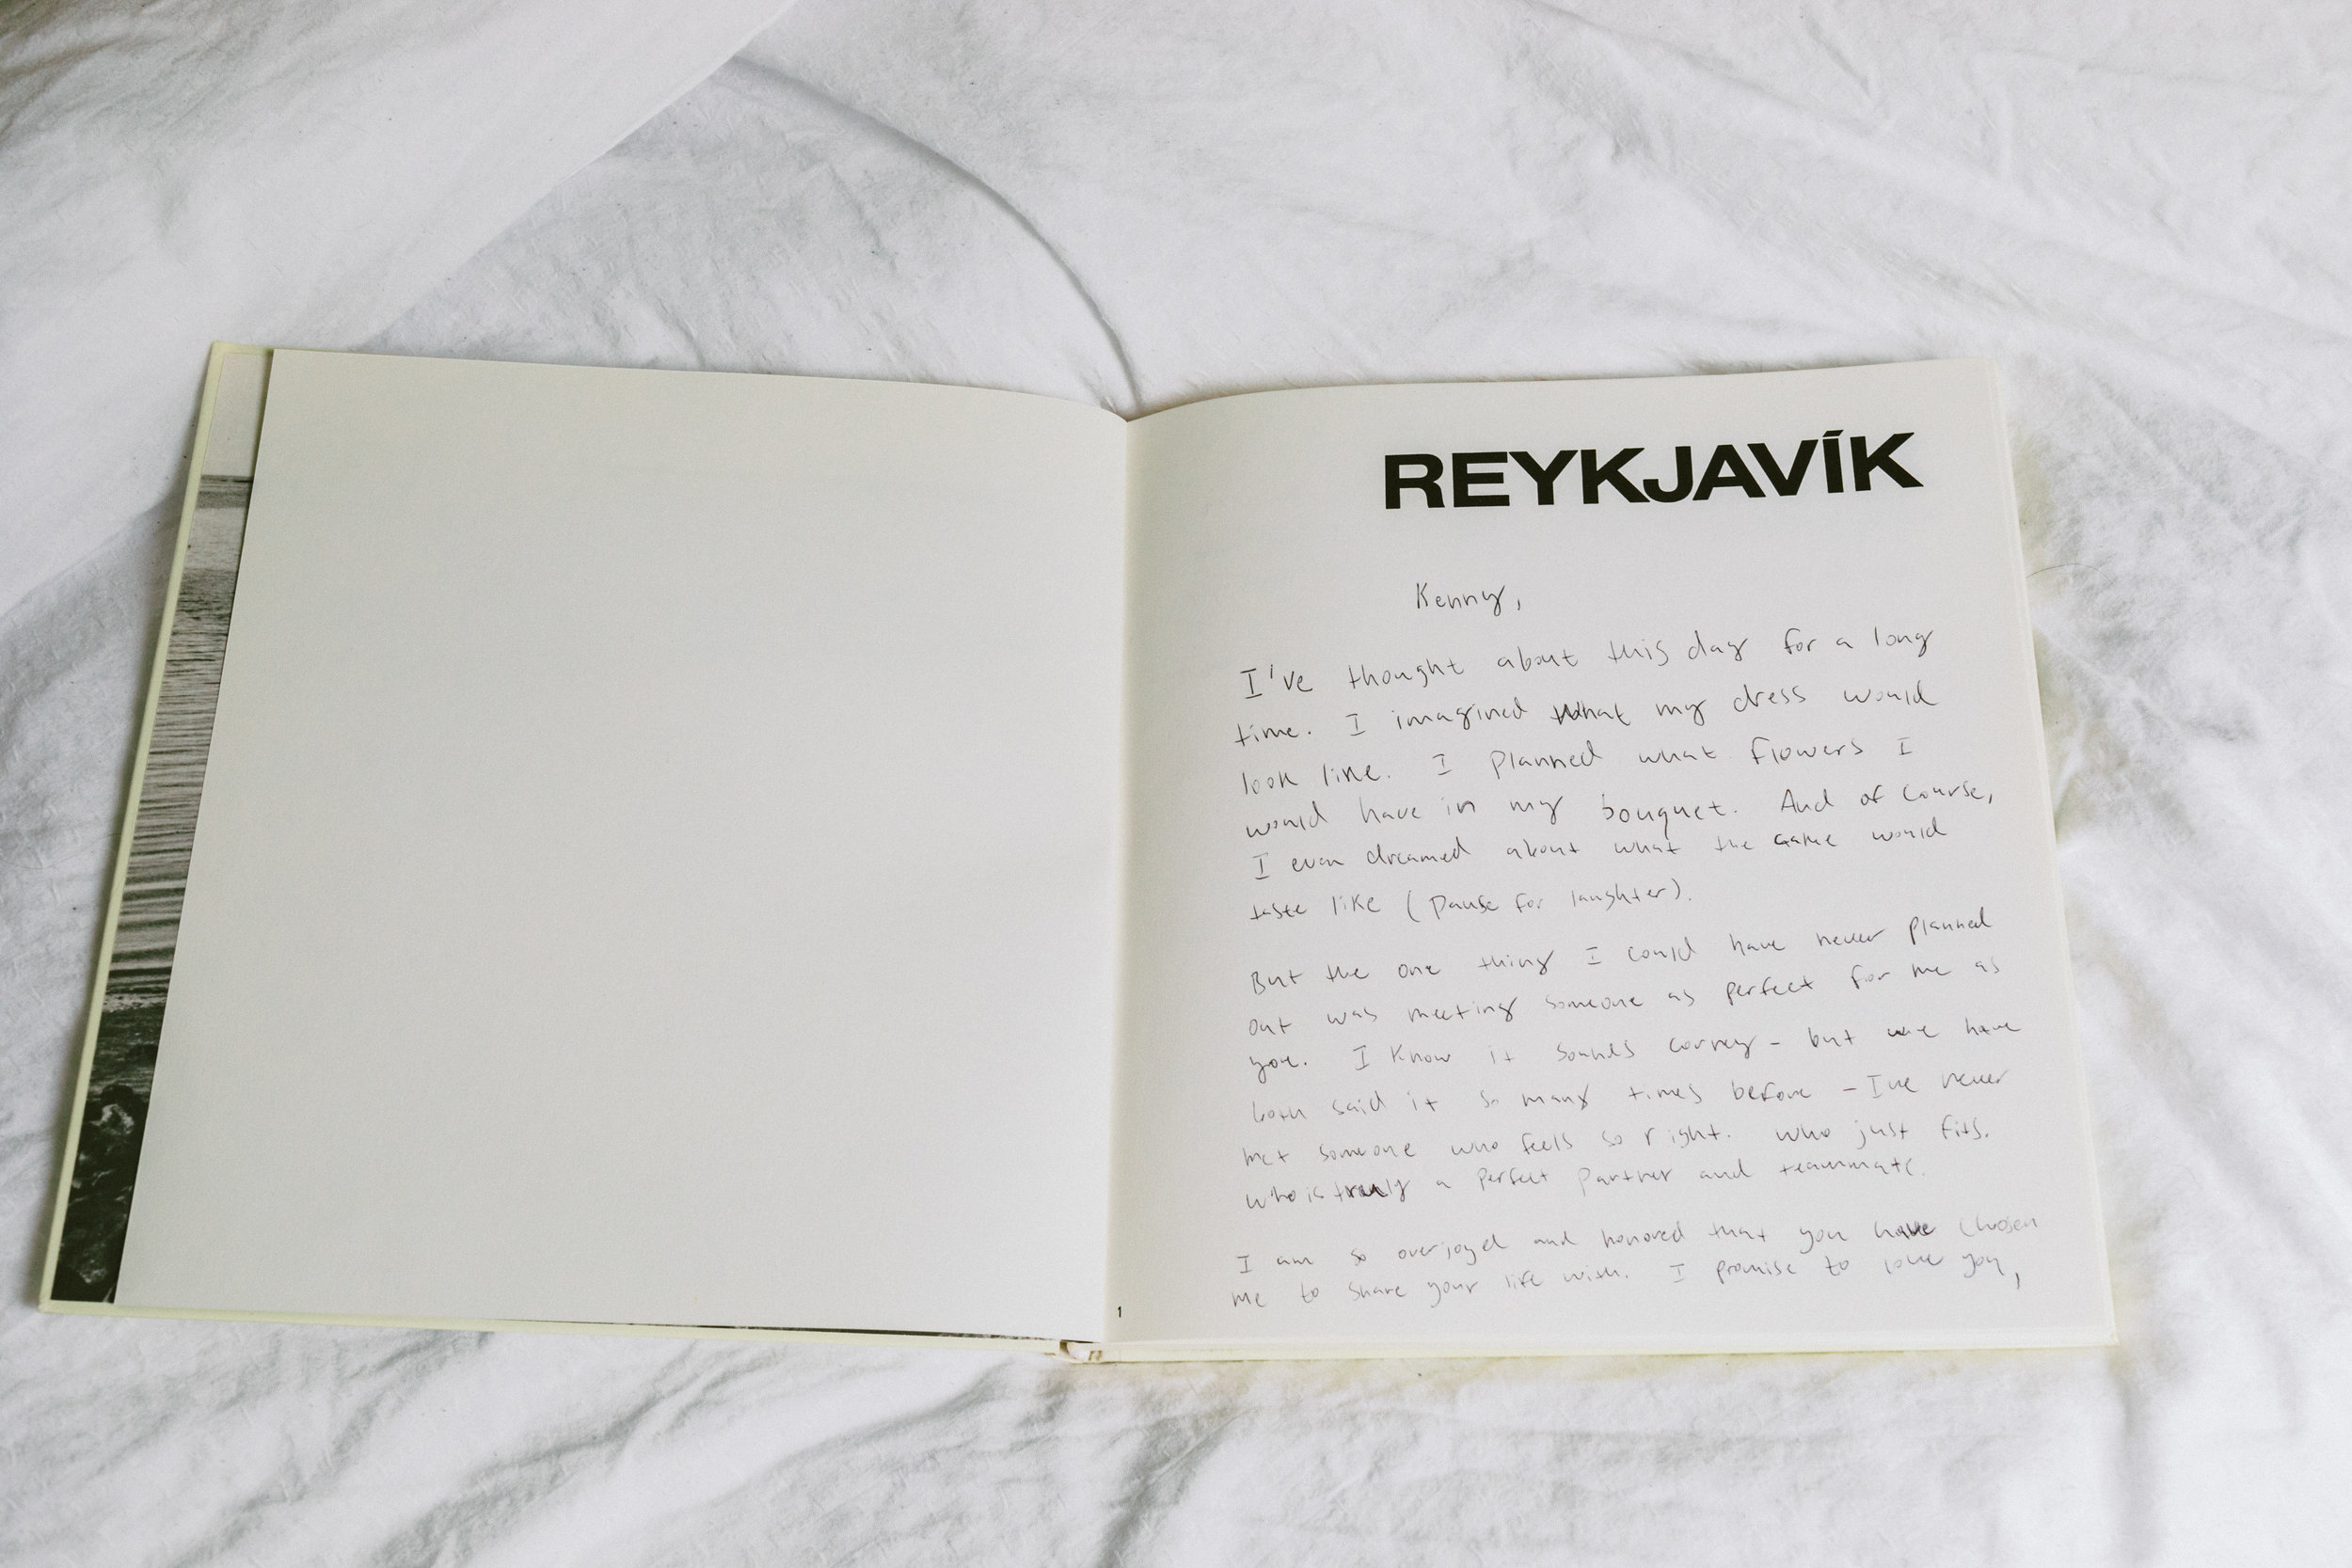 REYKJAVÍK
Kenny,
I've thought about this day for a long
time. I imagined what my dress would
look like. I planned what flowers I
would have in my bouquet. And of course,
I even dreamed about what the cake would
taste like (pause for laughter).
But the one thing I could have never planned
out was meeting someone as perfect for me as
you. I know it sounds corney - but we have
both said it so many times before - I've never
met someone who feels so right. Who just fits.
Who is truly a perfect partner and teammate.
I am so overjoyed and honored that you have chosen
me to share your life with. I promise to love you,
1